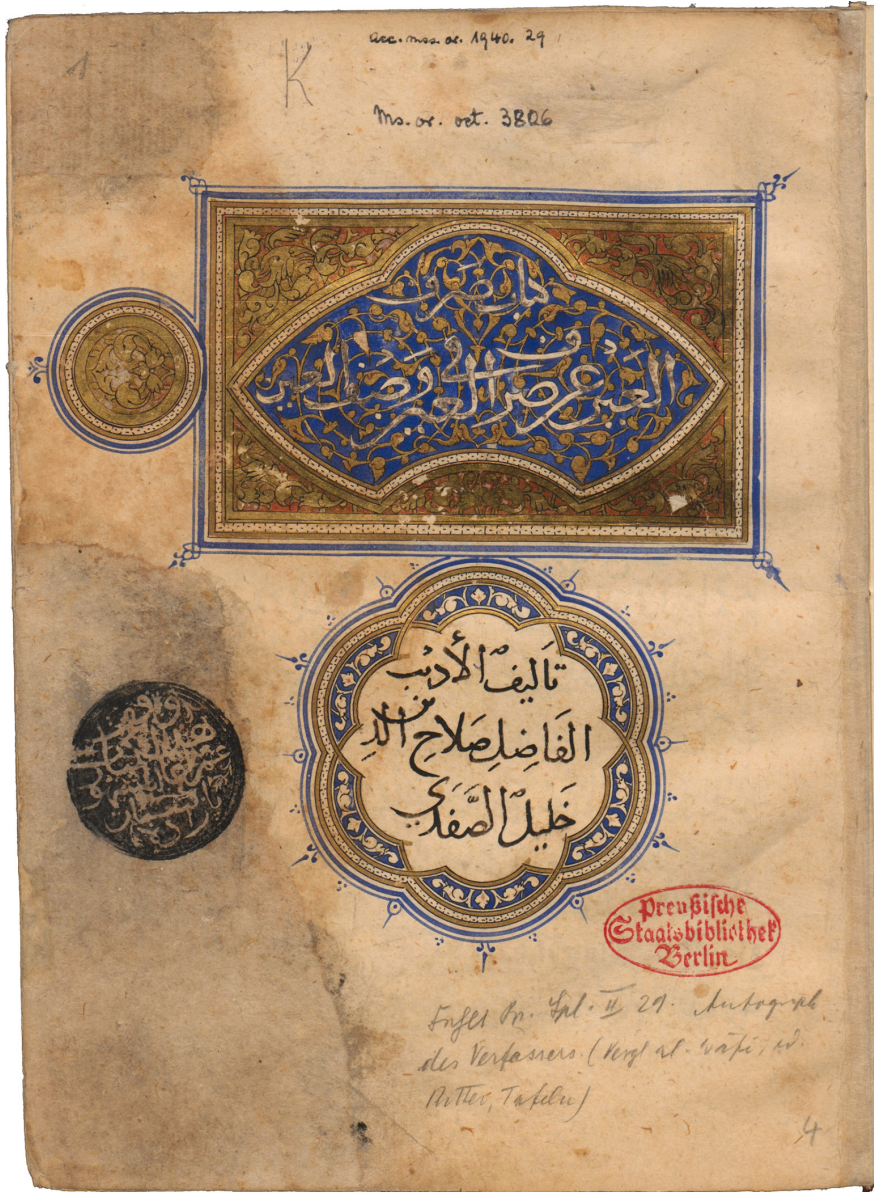 1
acc. mss. or. 1940. 29
K
Ms. or. oct. 3806
كتاب صرف
العين عن صرف العين في وصف العين
تَاليفُ الأَديْب
الفَاضِلِ صَلاحِ الدِّين
خَليلٌ الصَّفَدِي
Preußische
Staatsbibliothek
Berlin
Fehlt Br. Spl. II 29. Autograph
des Verfassers. (Vergl al-Wāfī, ed.
Ritter, Tafeln)
4